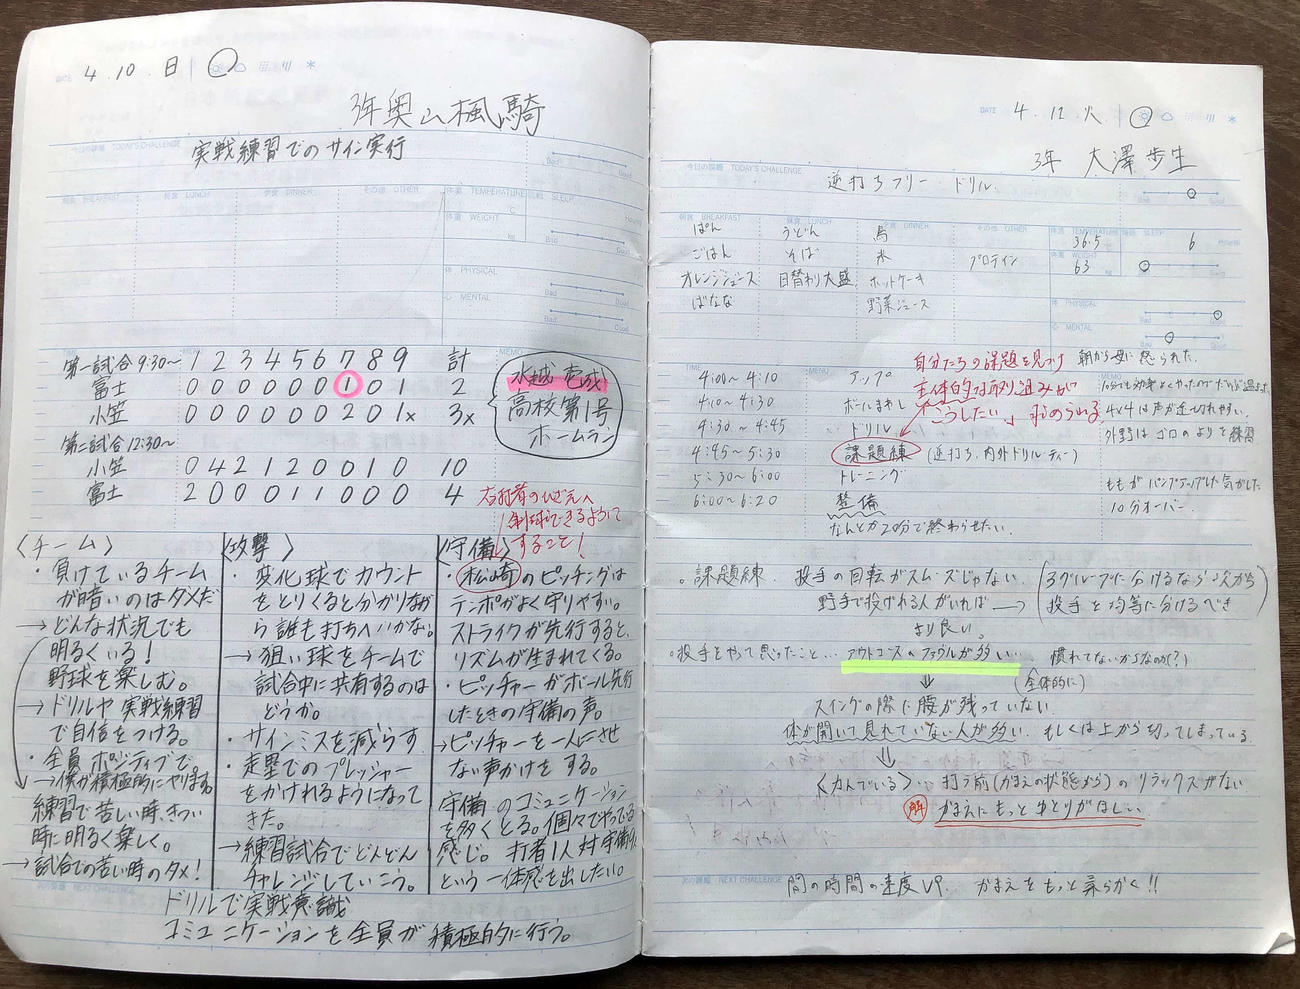 4.10.日
3年奥山楓騎
今日の課題 TODAY'S CHALLENGE
実戦練習でのサイン実行
朝食 BREAKFAST
昼食 LUNCH
夕食 DINNER
その他 OTHER
体温 TEMPERATURE
睡眠 SLEEP
体重 WEIGHT
体 PHYSICAL
心 MENTAL
Bad Good
TIME
MENU
MEMO
1 2 3 4 5 6 7 8 9 計
第一試合 9:30~
富士 0 0 0 0 0 0 1 0 1 2
小笠 0 0 0 0 0 0 2 0 1x 3x
水越 壱成
高校第1号
ホームラン
第二試合 12:30~
小笠 0 4 2 1 2 0 0 1 0 10
富士 2 0 0 0 1 1 0 0 0 4
右打者のひざ元へ
制球できるように
すること!
〈チーム〉
・負けているチーム
が暗いのはダメだ
→どんな状況でも
明るくいる!
野球を楽しむ。
→ドリルや実戦練習
で自信をつける。
・全員ポジティブで。
→僕が積極的にやります。
練習で苦しい時、きつい
時に明るく楽しく。
→試合での苦しい時のタメ!
〈攻撃〉
・変化球でカウント
をとりくると分かりなが
ら誰も打ちへいかない。
→狙い球をチームで
試合中に共有するのは
どうか。
・サインミスを減らす
・走塁でのプレッシャー
をかけれるようになって
きた。
→練習試合でどんどん
チャレンジしていこう。
〈守備〉
・松崎のピッチングは
テンポがよく守りやすい。
ストライクが先行すると、
リズムが生まれてくる。
・ピッチャーがボール先行
したときの守備の声。
→ピッチャーを一人にさせ
ない声かけをする。
守備のコミュニケーション
を多くとる。個々でやってる
感じ。打者1人対守備9人
という一体感を出したい。
次の課題 NEXT CHALLENGE
ドリルで実戦意識
コミュニケーションを全員が積極的に行う。
DATE 4.12.火
3年 大澤歩生
今日の課題 TODAY'S CHALLENGE
逆打ちフリー ドリル.
朝食 BREAKFAST
ぱん
ごはん
オレンジジュース
ばなな
昼食 LUNCH
うどん
そば
日替わり大盛
夕食 DINNER
鳥
米
ホットケーキ
野菜ジュース
その他 OTHER
プロテイン
体温 TEMPERATURE
36.5
睡眠 SLEEP
6
体重 WEIGHT
63
体 PHYSICAL
心 MENTAL
Bad Good
朝から母に怒られた.
自分たちの課題を見つけ
主体的な取り組みが
「こうしたい」求められる
TIME
MENU
MEMO
4:00~4:10 アップ
4:10~4:30 ボールまわし
4:30~4:45 ドリル
4:45~5:30 課題練 (逆打ち、内外ドリル・ティー)
5:30~6:00 トレーニング
6:00~6:20 整備
なんとか20分で終わらせたい.
4×4は声が途切れやすい.
外野はゴロのよりを練習
ももがパンプアップした気がした.
10分オーバー.
。課題練. 投手の回転がスムーズじゃない.
野手で投げれる人がいれば→
より良い。
3グループに分けるなら
投手を均等に分けるべき
。投手をやって思ったこと…アウトコースのファウルが多い…慣れてないからなのか(?)
(全体的に)
スイングの際に腰が残っていない.
体が開いて見れていない人が多い. もしくは上から切ってしまっている.
〈力んでいる〉…打つ前(かまえの状態から)のリラックスがない
解 かまえにもっとゆとりがほしい.
次の課題 NEXT CHALLENGE
間の時間の速度UP. かまえをもっと柔らかく!!